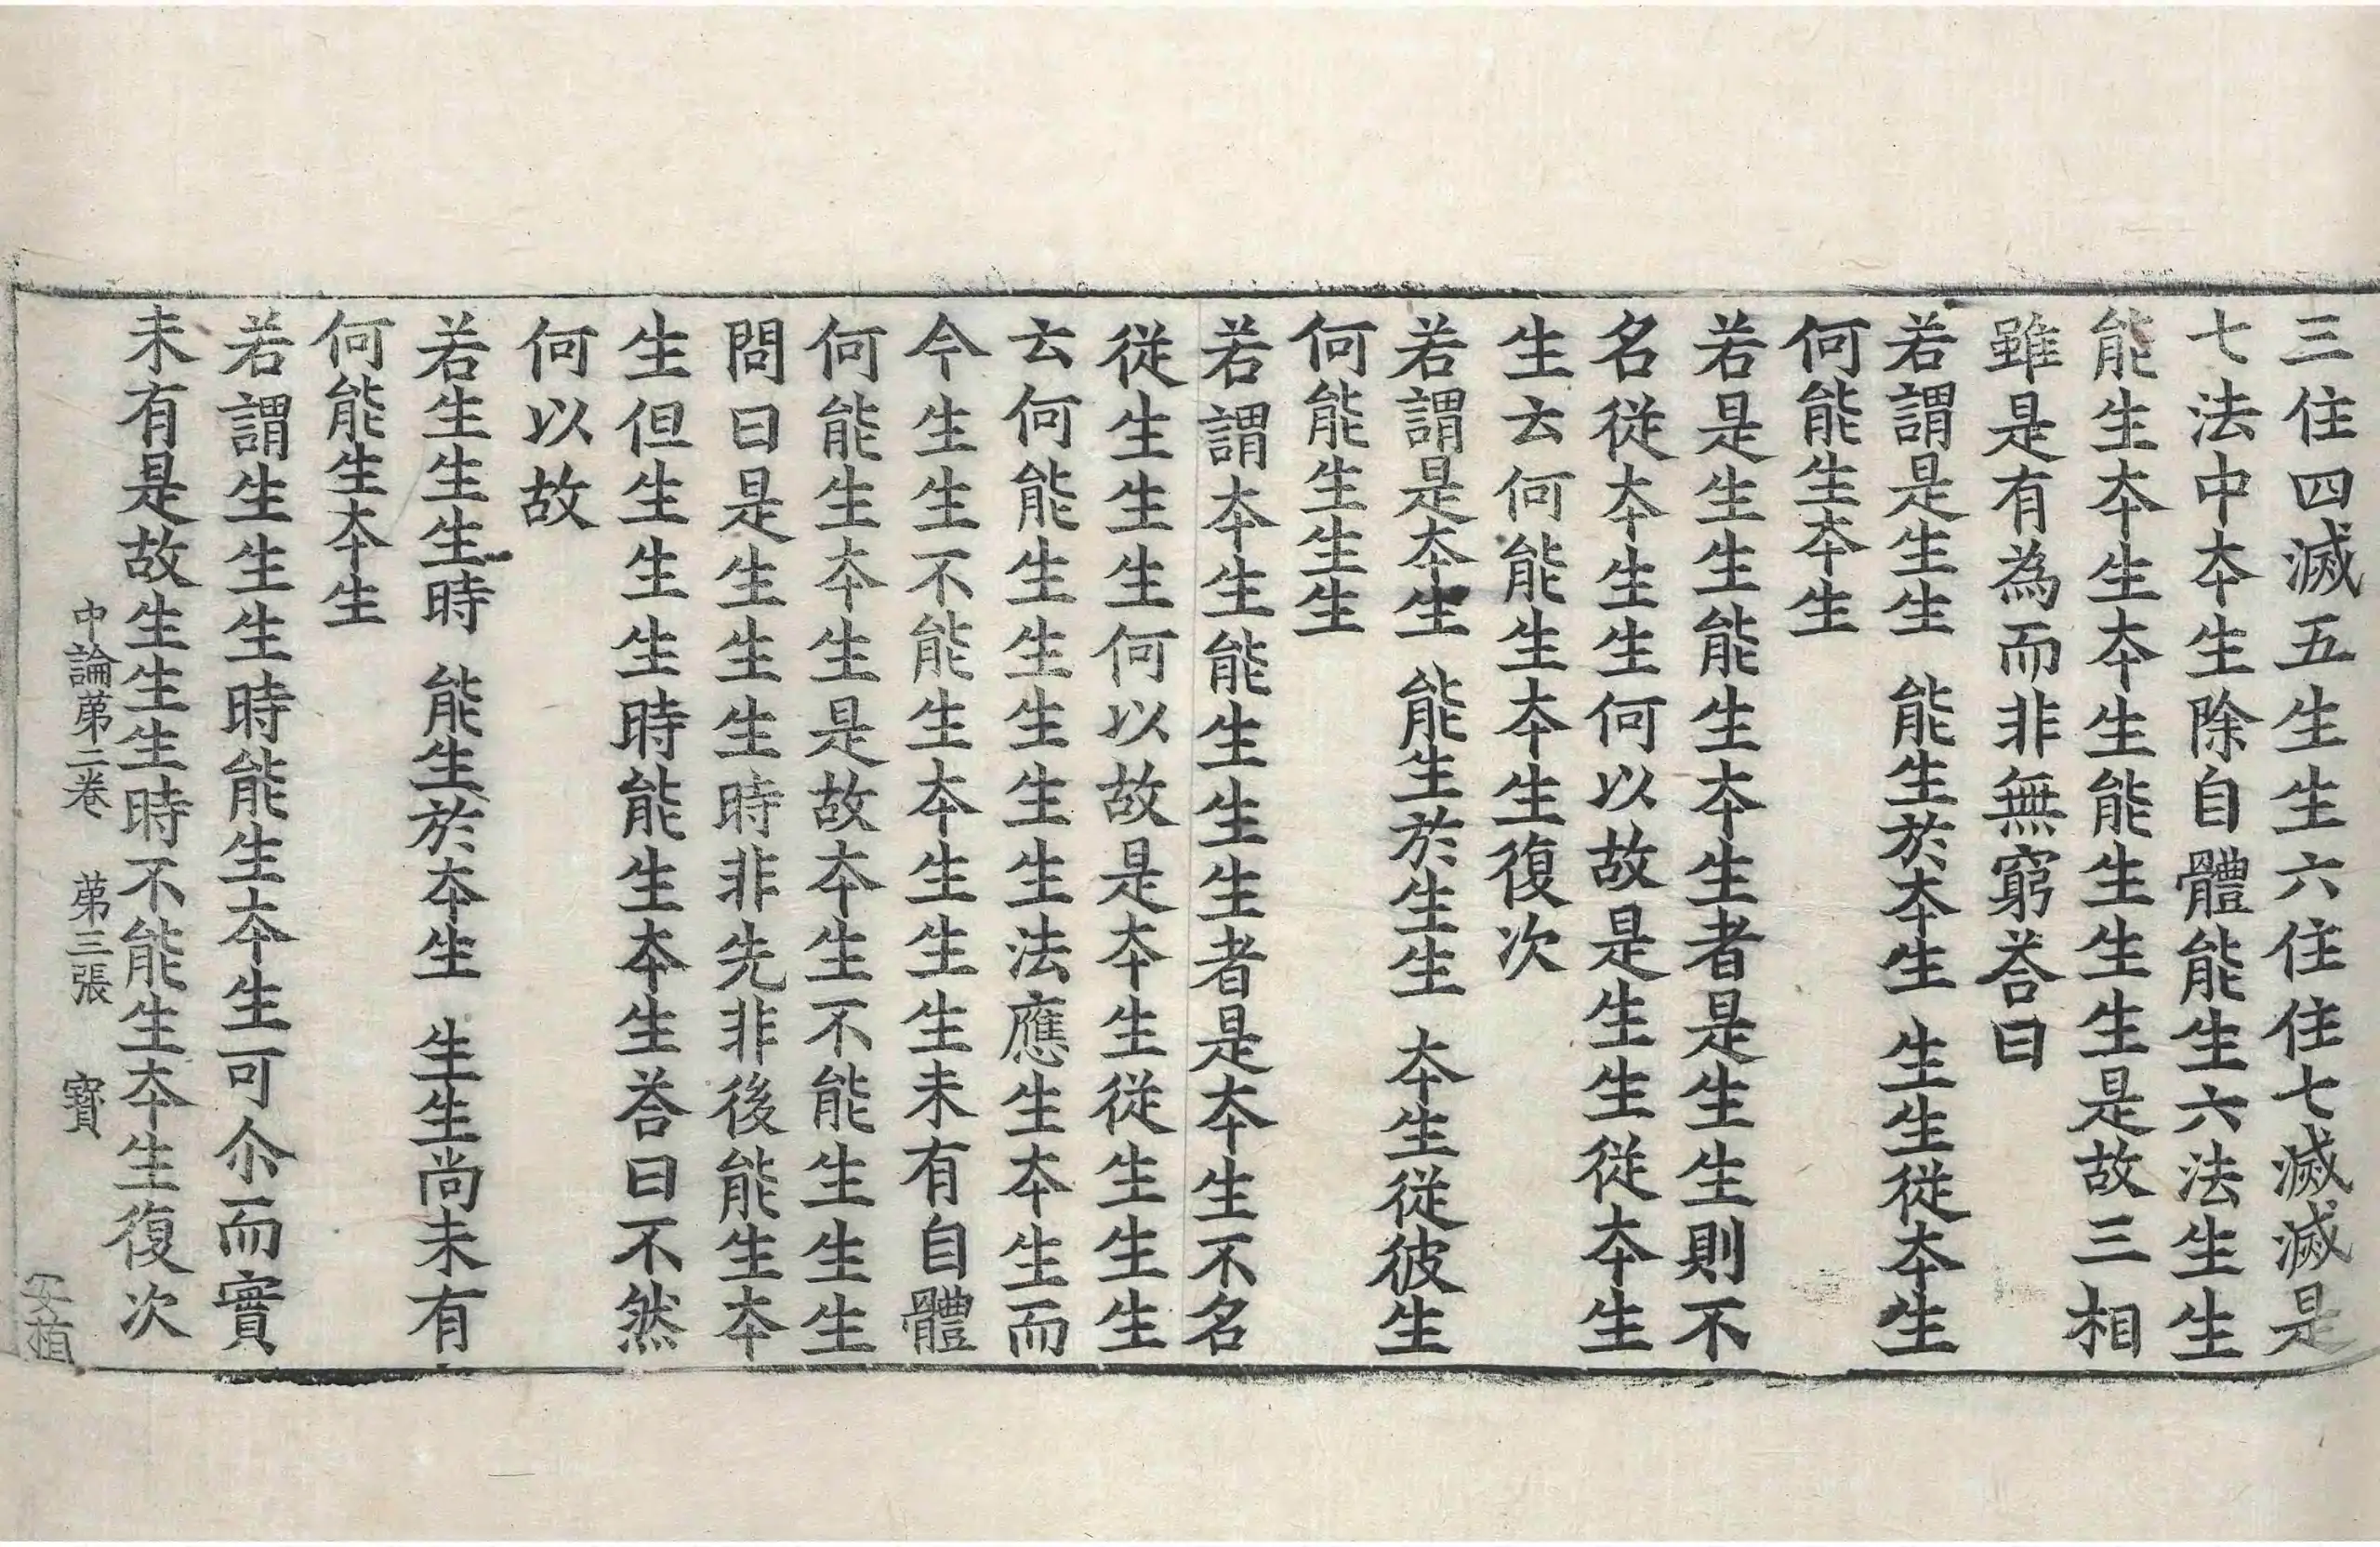 三住四滅五生生六住住七滅滅是
七法中夲生除自體能生六法生生
能生夲生夲生能生生生是故三相
雖是有為而非無窮荅曰
若謂是生生 能生於夲生 生生從夲生
何能生夲生
若是生生能生夲生者是生生則不
名從夲生生何以故是生生從夲生
生云何能生夲生復次
若謂是夲生 能生於生生 夲生從彼生
何能生生生
若謂夲生能生生生者是夲生不名
從生生生何以故是夲生從生生生
云何能生生生生生法應生夲生而
今生生不能生夲生生生未有自體
何能生夲生是故夲生不能生生生
問曰是生生生時非先非後能生夲
生但生生生時能生夲生荅曰不然
何以故
若生生生時 能生於夲生 生生尚未有
何能生夲生
若謂生生生時能生夲生可尒而實
未有是故生生生時不能生夲生復次
中論苐二卷 苐三張 寳
安植